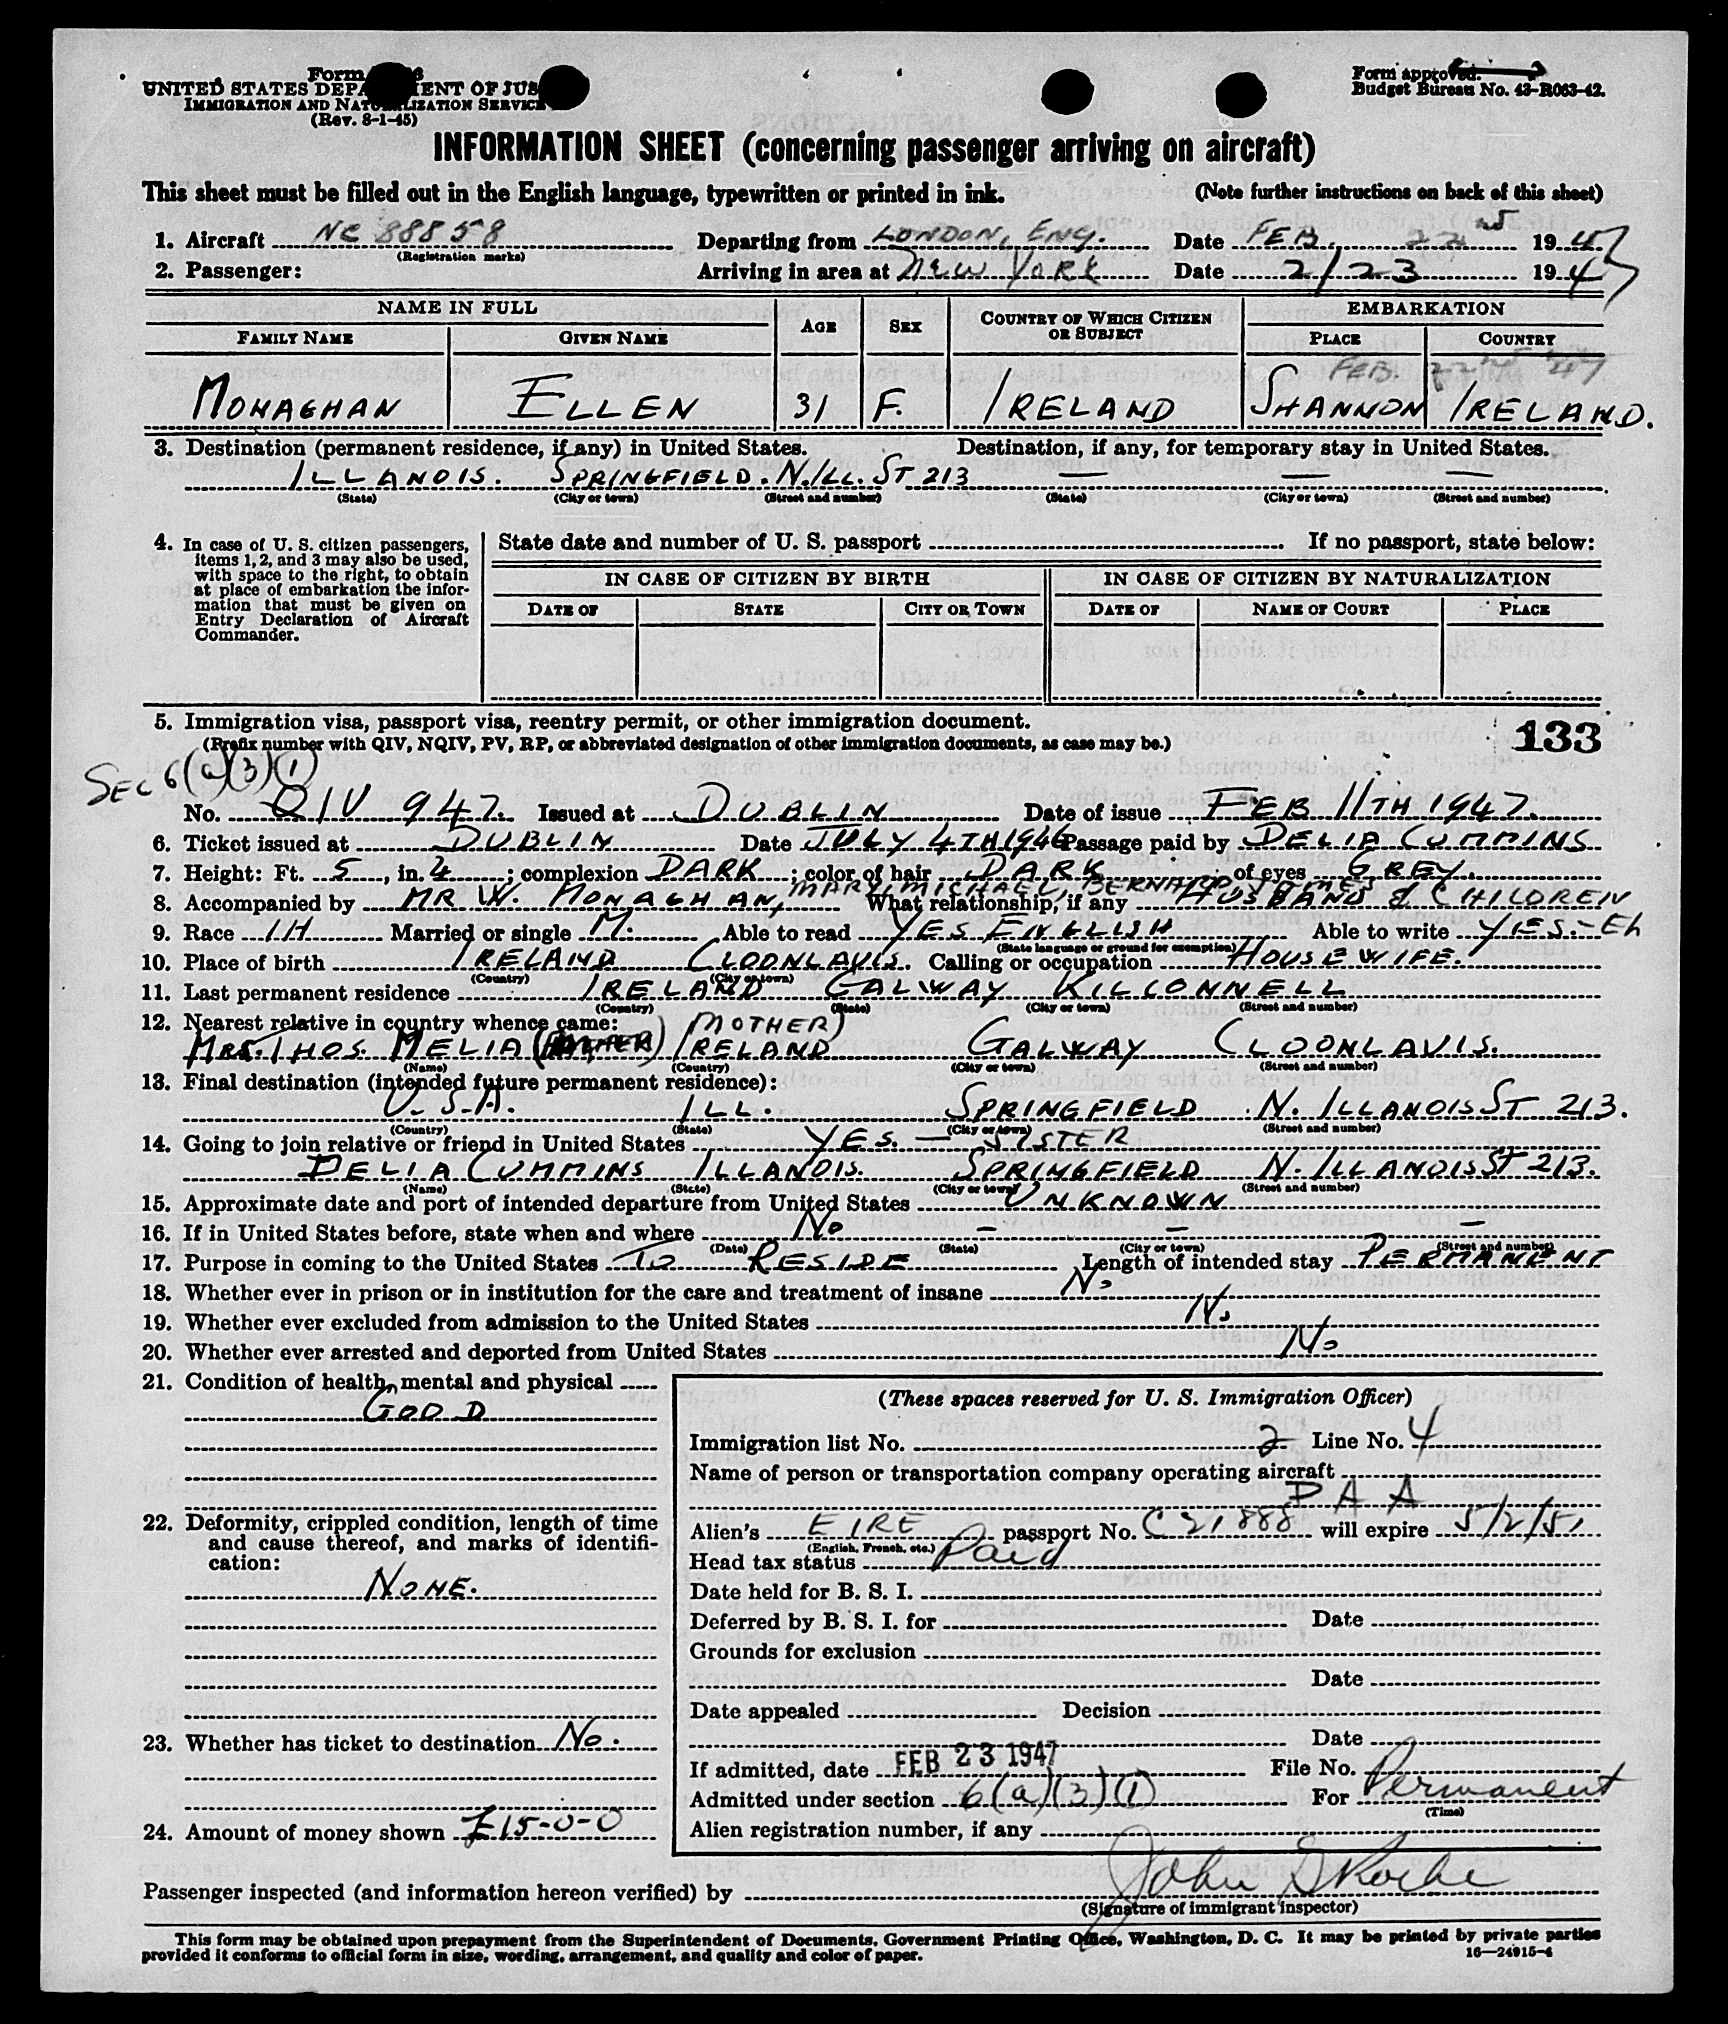 Form
UNITED STATES DEPARTMENT OF JUS
IMMIGRATION AND NATURALIZATION SERVICE
(Rev. 8-1-45)
Form approved.
Budget Bureau No. 43-R063-42.
INFORMATION SHEET (concerning passenger arriving on aircraft)
This sheet must be filled out in the English language, typewritten or printed in ink. (Note further instructions on back of this sheet)
1. Aircraft NC 88858 Departing from LONDON, ENG. Date FEB 22nd 1947
(Registration marks)
2. Passenger: Arriving in area at NEW YORK Date 2/23 1947
NAME IN FULL AGE SEX COUNTRY OF WHICH CITIZEN OR SUBJECT EMBARKATION
FAMILY NAME GIVEN NAME PLACE COUNTRY
FEB. 22nd 47
MONAGHAN ELLEN 31 F. IRELAND SHANNON IRELAND.
3. Destination (permanent residence, if any) in United States. Destination, if any, for temporary stay in United States.
ILLANOIS. SPRINGFIELD. N. ILL. ST 213 — — —
(State) (City or town) (Street and number) (State) (City or town) (Street and number)
4. In case of U. S. citizen passengers, items 1, 2, and 3 may also be used, with space to the right, to obtain at place of embarkation the information that must be given on Entry Declaration of Aircraft Commander.
State date and number of U. S. passport If no passport, state below:
IN CASE OF CITIZEN BY BIRTH IN CASE OF CITIZEN BY NATURALIZATION
DATE OF STATE CITY OR TOWN DATE OF NAME OF COURT PLACE
5. Immigration visa, passport visa, reentry permit, or other immigration document.
(Prefix number with QIV, NQIV, PV, RP, or abbreviated designation of other immigration documents, as case may be.)
133
SEC 6(a)(3)(1)
No. QIV 947. Issued at DUBLIN Date of issue FEB 11TH 1947.
6. Ticket issued at DUBLIN Date JULY 4TH 1946 Passage paid by DELIA CUMMINS
7. Height: Ft. 5, in. 4; complexion DARK; color of hair DARK; of eyes GREY.
8. Accompanied by MR W. MONAGHAN, MARY, MICHAEL, BERNARD, JAMES What relationship, if any HUSBAND & CHILDREN
9. Race IH Married or single M. Able to read YES ENGLISH Able to write YES - Eh
(State language or ground for exemption)
10. Place of birth IRELAND CLOONLAVIS. Calling or occupation HOUSEWIFE.
(Country) (City or town)
11. Last permanent residence IRELAND GALWAY KILCONNELL
(Country) (State) (City or town) (Street and number)
12. Nearest relative in country whence came: (MOTHER)
MRS. THOS. MELIA IRELAND GALWAY CLOONLAVIS.
(Name) (Country) (City or town) (Street and number)
13. Final destination (intended future permanent residence):
U.S.A. ILL. SPRINGFIELD N. ILLANOIS ST 213.
(Country) (State) (City or town) (Street and number)
14. Going to join relative or friend in United States YES. — SISTER
DELIA CUMMINS ILLANOIS. SPRINGFIELD N. ILLANOIS ST 213.
(Name) (State) (City or town) (Street and number)
15. Approximate date and port of intended departure from United States UNKNOWN
16. If in United States before, state when and where No — — —
(Date) (State) (City or town) (Street and number)
17. Purpose in coming to the United States TO RESIDE Length of intended stay PERMANENT
18. Whether ever in prison or in institution for the care and treatment of insane No
19. Whether ever excluded from admission to the United States No
20. Whether ever arrested and deported from United States No
21. Condition of health, mental and physical
GOOD
22. Deformity, crippled condition, length of time and cause thereof, and marks of identification:
NONE.
23. Whether has ticket to destination No.
24. Amount of money shown £15-0-0
(These spaces reserved for U. S. Immigration Officer)
Immigration list No. 2 Line No. 4
Name of person or transportation company operating aircraft
P A A
Alien's EIRE passport No. C21888 will expire 5/2/51
(English, French, etc.)
Head tax status Paid
Date held for B. S. I.
Deferred by B. S. I. for Date
Grounds for exclusion
Date
Date appealed Decision
Date
If admitted, date FEB 23 1947 File No.
Admitted under section 6(a)(3)(1) For Permanent
(Time)
Alien registration number, if any
Passenger inspected (and information hereon verified) by John S Roche
(Signature of immigrant inspector)
This form may be obtained upon prepayment from the Superintendent of Documents, Government Printing Office, Washington, D. C. It may be printed by private parties
provided it conforms to official form in size, wording, arrangement, and quality and color of paper. 16—24915-4